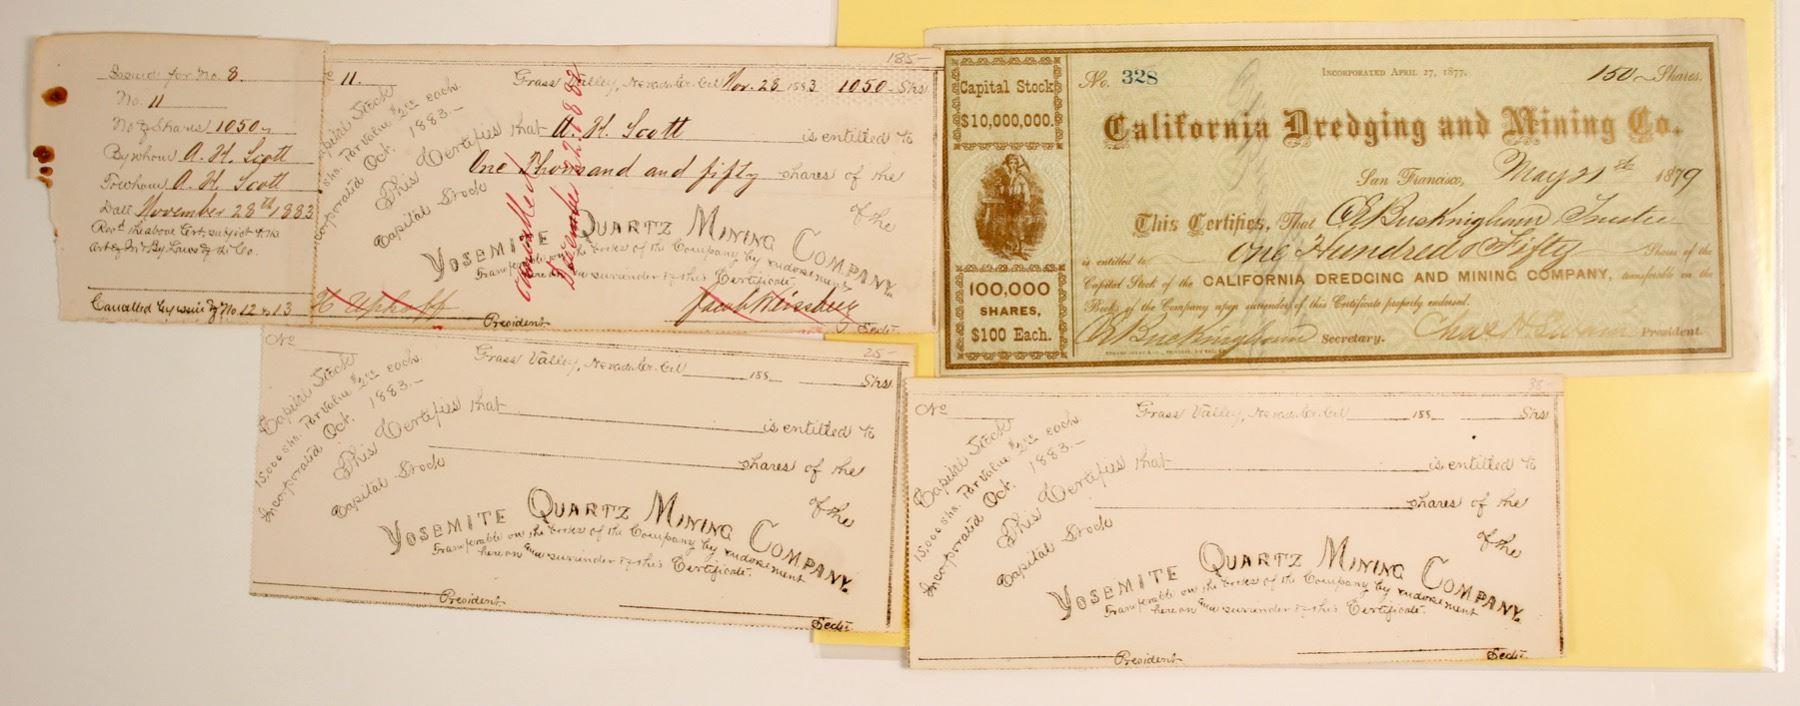 Issued for No. 8.
No. 11
No of Shares 1050
By whom A. H. Scott
To whom A. H. Scott
Date November 28th 1883
Rec'd the above Cert. subject to the
Art of In & By Laws of the Co.
Cancelled by issue of No. 12 & 13
185-
11.
Grass Valley, Nevada Co. Cal Nov. 28 1883 1050 Shs
Capital Stock
Par Value $2.00 each.
Incorporated Oct. 1883.-
This Certifies that A. H. Scott is entitled to
One Thousand and fifty shares of the
Capital Stock of the
YOSEMITE QUARTZ MINING COMPANY.
Transferable on the books of the Company by endorsement
hereon and surrender of this Certificate.
Cancelled
December 22 1883
H Uphoff President
Jacob Weissbein Sect.
No. 328
INCORPORATED APRIL 27, 1877.
150 Shares.
Capital Stock
$10,000,000.
California Dredging and Mining Co.
San Francisco, May 21st 1879
This Certifies, That C E Buckingham Trustee
is entitled to One Hundred & Fifty Shares of the
Capital Stock of the CALIFORNIA DREDGING AND MINING COMPANY, transferable on the
Books of the Company upon surrender of this Certificate properly endorsed.
Buckingham Secretary. Chas H President.
100,000
SHARES,
$100 Each.
25-
No
Grass Valley, Nevada Co. Cal 188 Shs
Capital Stock
15,000 sha. Par Value $2.00 each.
Incorporated Oct. 1883.-
This Certifies that is entitled to
shares of the
Capital Stock of the
YOSEMITE QUARTZ MINING COMPANY.
Transferable on the books of the Company by endorsement
hereon and surrender of this Certificate.
President
Sect.
38-
No
Grass Valley, Nevada Co. Cal 188 Shs
Capital Stock
15,000 sha. Par Value $2.00 each.
Incorporated Oct. 1883.-
This Certifies that is entitled to
shares of the
Capital Stock of the
YOSEMITE QUARTZ MINING COMPANY.
Transferable on the books of the Company by endorsement
hereon and surrender of this Certificate.
President
Sect.